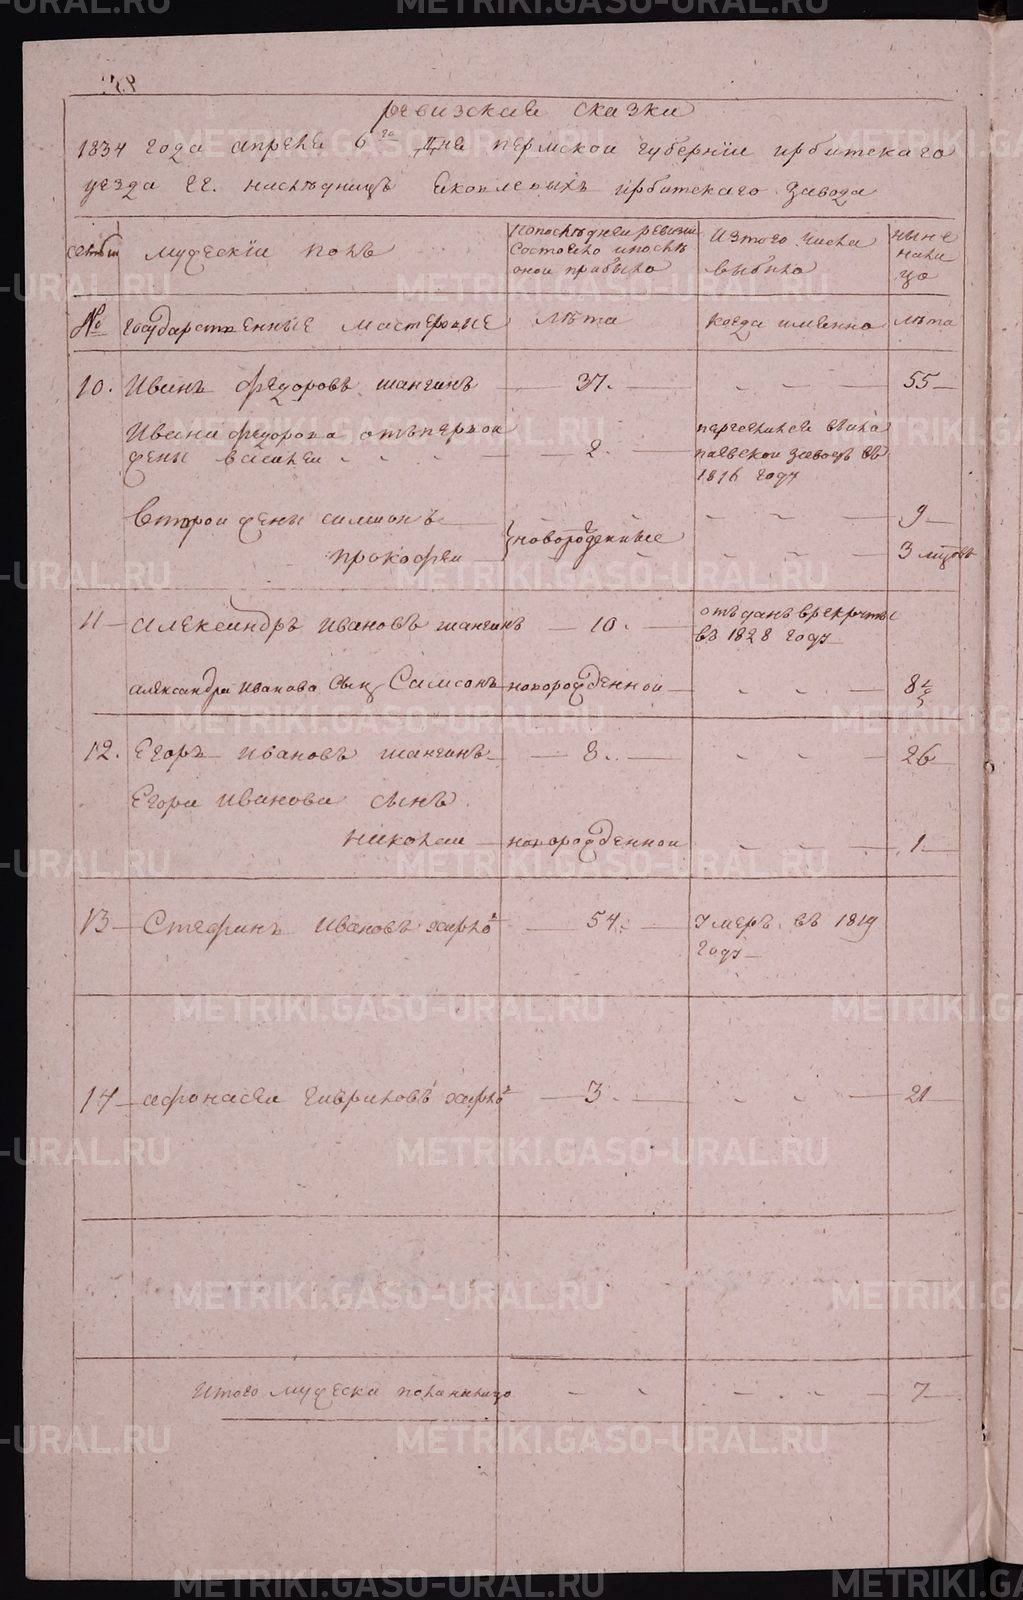 Ревизская сказка
1834 года апреля 6го дня пермской губернии ирбитского
уезда гг. наследниц Яковлевых ирбитского завода
семьи
мужеский пол
По последней ревизии состояло и после оной прибыло
Из того числа выбыло
ныне налицо
№
государственные мастеровые
лета
когда именно
лета
10. Иван Федоров шангин — 37. — 55
Ивана федорова от первой
жены василей — 2. — переселился в
заводъ в
1816 году
второй жены симион — 9
прокофей — новорожденные — 3
11 — Александръ Ивановъ шангинъ — 10. — отъданъ в рекруты
въ 1828 году
александра иванова сын Самсонъ — новорожденной — 8
12. Егоръ Ивановъ шангинъ — 8. — 26
Егора Иванова сынъ
николай — новорожденной — 1
13 — Стефанъ Ивановъ — 54. — умеръ въ 1819
году
14 — афонасей гавриловъ — 3 — 21
Итого мужеска пола налицо — 7
METRIKI.GASO-URAL.RU